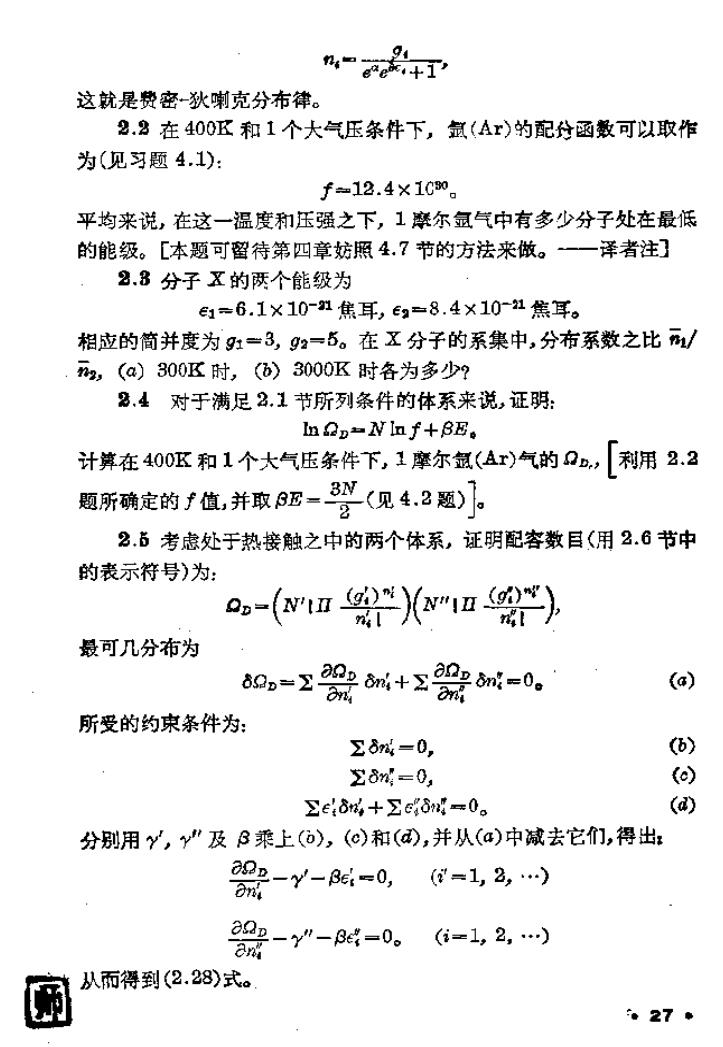 nᵢ=gᵢ/(e^α e^{βεᵢ}+1),
这就是费密-狄喇克分布律。
2.2 在400K 和1个大气压条件下，氩(Ar)的配分函数可以取作
为(见习题 4.1)：
f=12.4×10³⁰。
平均来说，在这一温度和压强之下，1摩尔氩气中有多少分子处在最低
的能级。[本题可留待第四章妨照4.7节的方法来做。——译者注]
2.3 分子X的两个能级为
ϵ₁=6.1×10⁻²¹焦耳，ϵ₂=8.4×10⁻²¹焦耳。
相应的简并度为g₁=3，g₂=5。在X分子的系集中，分布系数之比 n̄₁/
n̄₂，(a) 300K时，(b) 3000K时各为多少？
2.4 对于满足2.1节所列条件的体系来说，证明：
lnΩ_D=N ln f+βE。
计算在400K和1个大气压条件下，1摩尔氩(Ar)气的Ω_D.，[利用 2.2
题所确定的f值，并取βE=3N/2(见4.2题)]。
2.5 考虑处于热接触之中的两个体系，证明配客数目(用2.6节中
的表示符号)为：
Ω_D=(N'!Π (g'ᵢ)^{n'ᵢ}/n'ᵢ!)(N''!Π (g''ᵢ)^{n''ᵢ}/n''ᵢ!)，
最可几分布为
δΩ_D=Σ ∂Ω_D/∂n'ᵢ δn'ᵢ+Σ ∂Ω_D/∂n''ᵢ δn''ᵢ=0。 (a)
所受的约束条件为：
Σδn'ᵢ=0, (b)
Σδn''ᵢ=0, (c)
Σϵ'ᵢδn'ᵢ+Σϵ''ᵢδn''ᵢ=0。 (d)
分别用γ'，γ''及β乘上(b)，(c)和(d)，并从(a)中减去它们，得出：
∂Ω_D/∂n'ᵢ-γ'-βϵ'ᵢ=0, (i'=1, 2, …)
∂Ω_D/∂n''ᵢ-γ''-βϵ''ᵢ=0。 (i=1, 2, …)
从而得到(2.28)式。
• 27 •